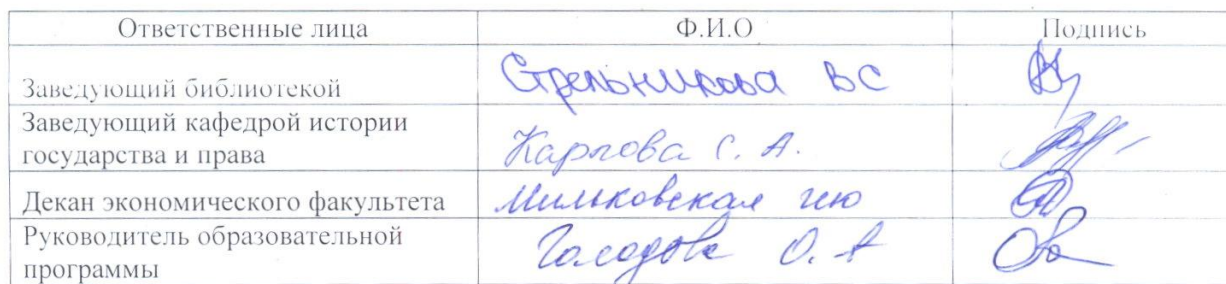 Ответственные лица Ф.И.О Подпись
Заведующий библиотекой Стрельникова ВС
Заведующий кафедрой истории
государства и права Карпова С. А.
Декан экономического факультета Мильковская
Руководитель образовательной
программы О. А